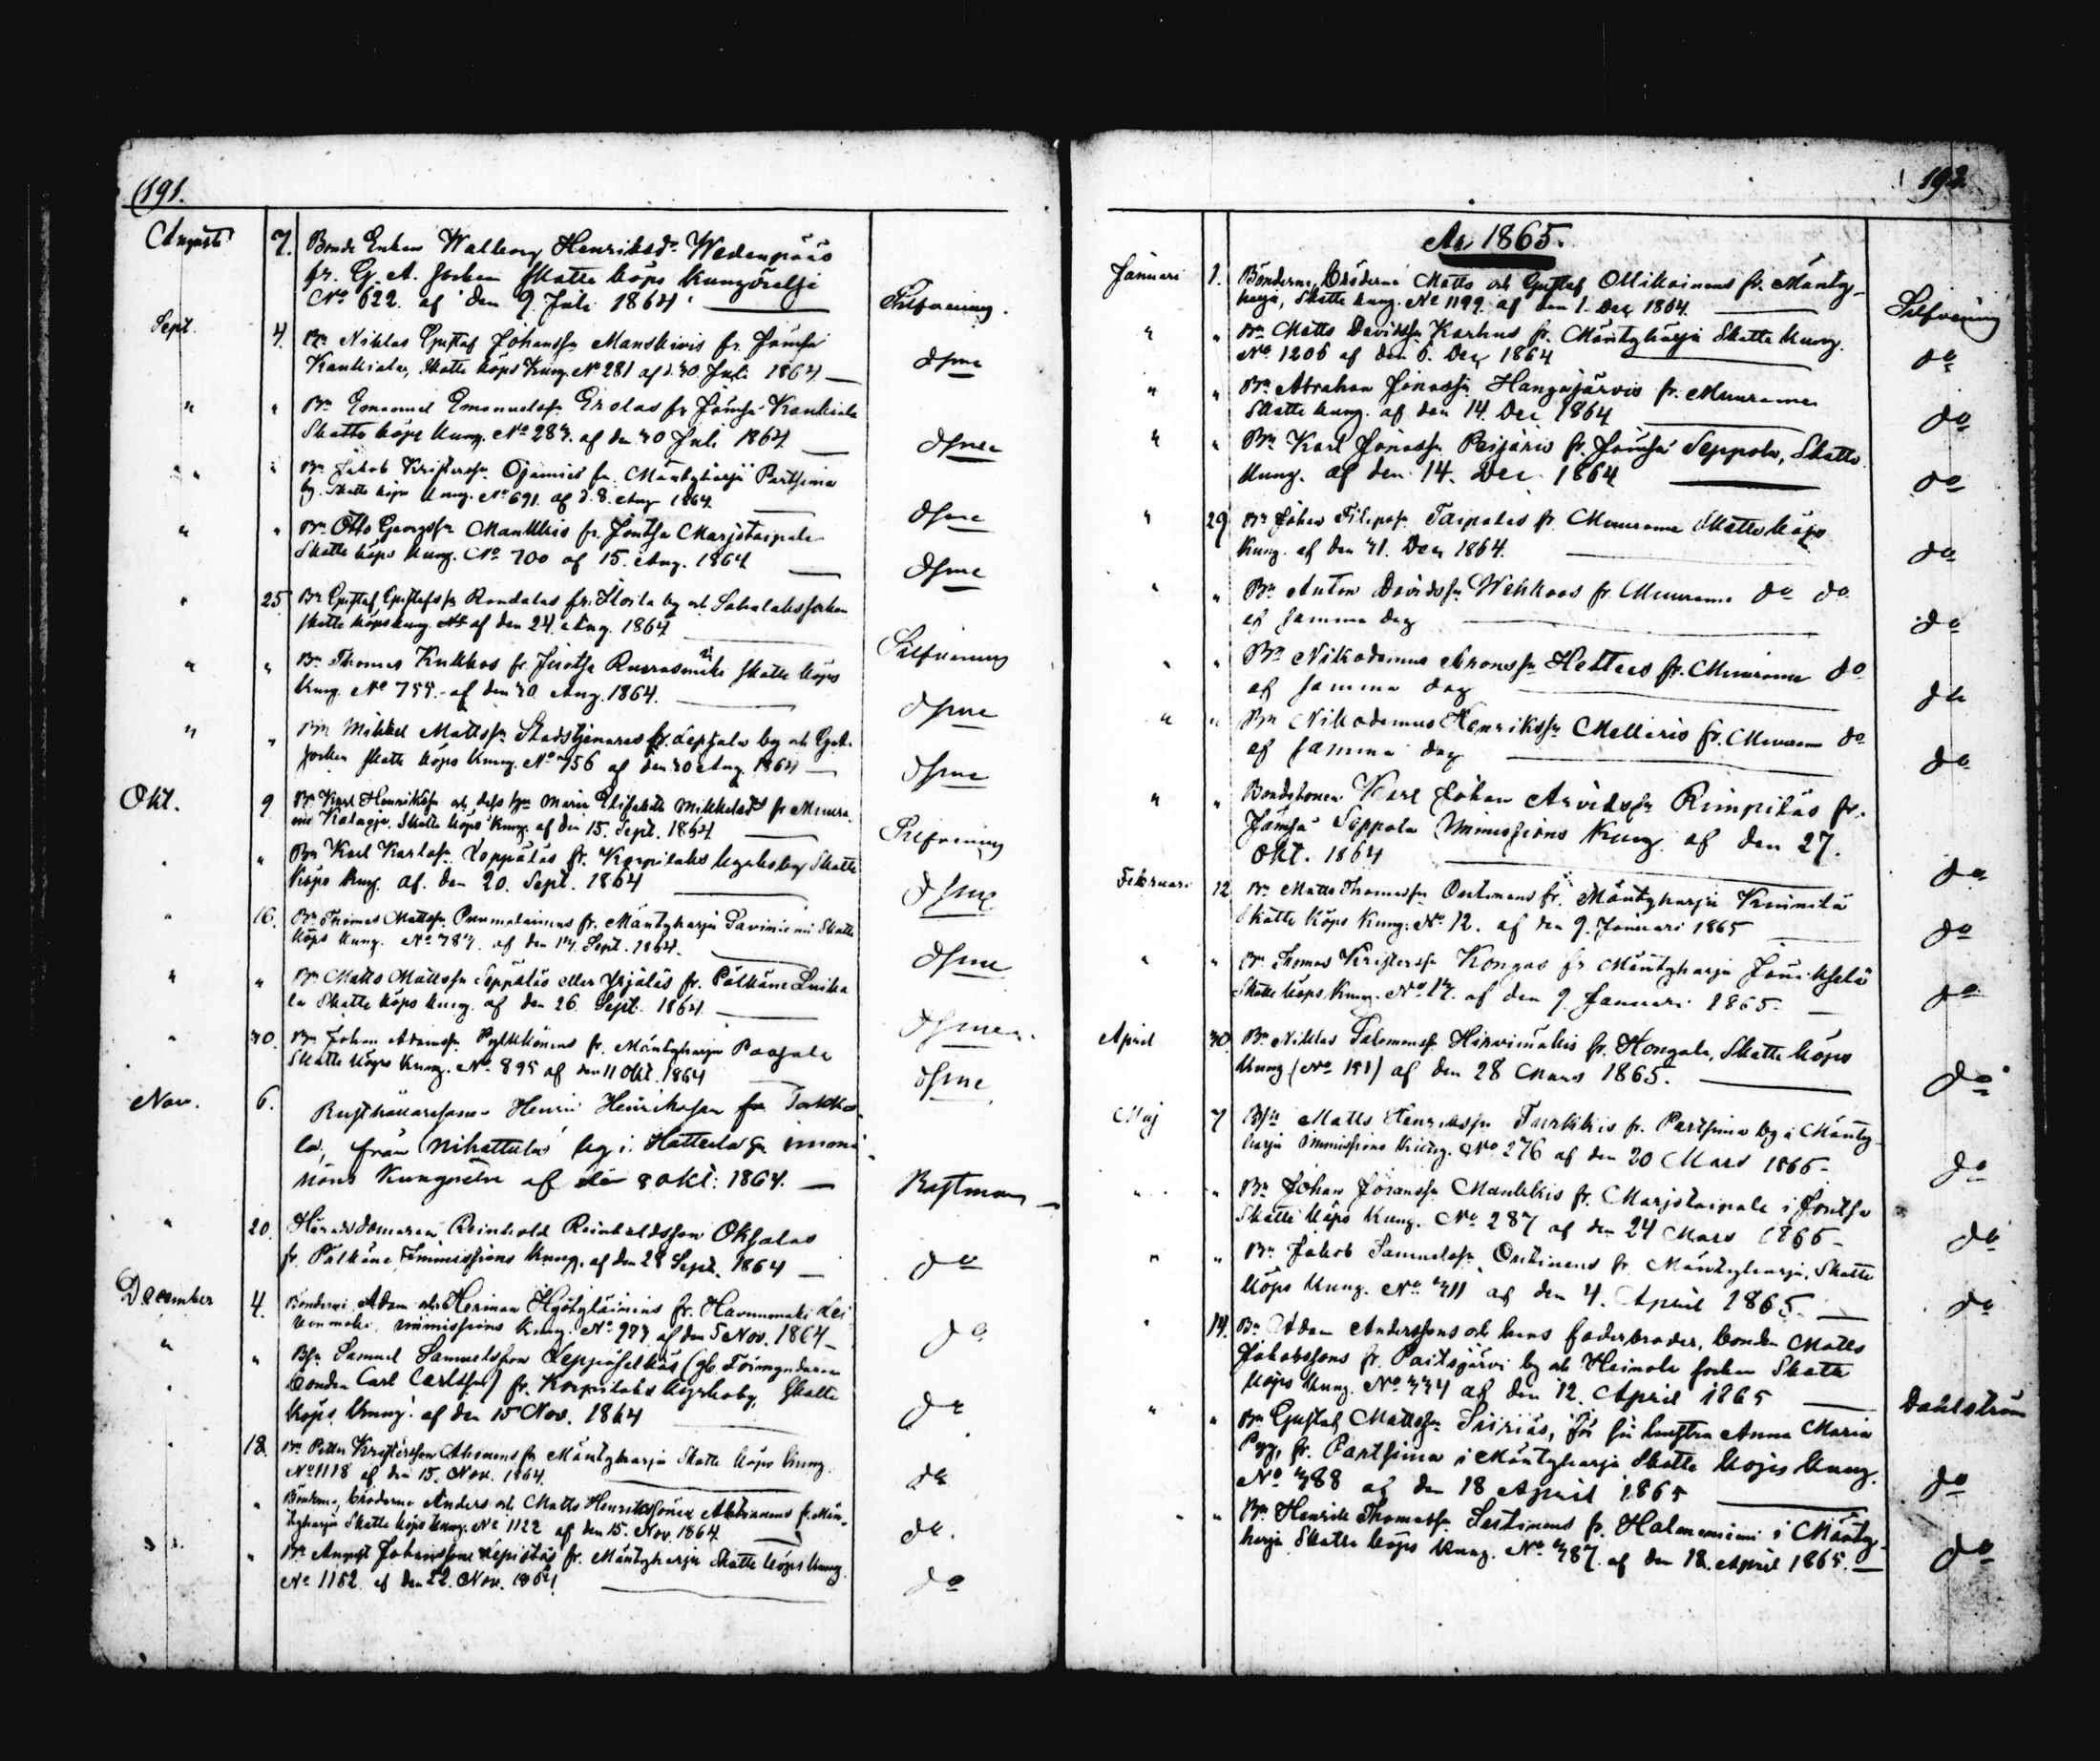 191.
Augusti 7. Bonde Enkan Walborg Henriksdr Wedenpääs
fr. G. A. socken skatte köps kungörelse
No 622. af den 9. Juli 1864. Silfvening.
Sept. 4. Bn Niklas Gustaf Johanssn Manskivis fr. Jämsä
Kaukiala, skatte köps Kung. No 281 af d. 30. Juli 1864 dsme
" " Bn Emanuel Emanuelssn Erolas fr Jämsä Kaukiala
Skatte köps Kung. No 283. af den 30 Juli 1864 dsme
" " Bn Jakob Kristerssn Ojanius fr. Mäntyharju Partsima
by. Skatte köps Kung. No 691. af d. 8. Aug 1864. dsme
" " Bn Otto Georgssn Maukkis fr. Joutsa Marjotaipale
Skatte köps Kung. No 700 af 15. Aug. 1864 dsme
" 25. Bn Gustaf Gustafssn Rondalas fr. by och Sahalaks socken
skatte köps kung. af den 24. Aug. 1864 Silfvening
" " Bn Thomas Kukkos fr. Joutsa Ruorasmäki skatte köps
Kung. No 755. af den 30. Aug. 1864. dsme
" " Bn Mikkel Mattssn Stadstjenares fr. Lepsala by och G. A.
socken skatte köps Kung. No 756 af den 30 Aug. 1864 dsme
Okt. 9 Bn Karl Henrikssn och dess hu Maria Elisabeth Mikkelsdr fr Muura-
me Kalaoja. Skatte köps Kung. af den 15. Sept. 1864 Silfvening
" " Bn Karl Karlssn Loppälas fr. Korpilaks kyrkoby Skatte
Köps Kung. af. den 20. Sept. 1864 dsme
" 16. Bn Thomas Mattssn Puumalainens fr. Mäntyharju Saviniemi Skatte
köps Kung. No 787. af den 13. Sept. 1864. dsme
" " Bn Matts Mattssn Seppäläs eller Yrjäläs fr. Pälkäne Luika
la Skatte köps kung. af den 26. Sept. 1864. dsme
" 30. Bn Johan Adamssn Pylkkönens fr. Mäntyharju Paasala
Skatte köps Kung. No 895 af den 11 Okt. 1864 dsme
Nov. 6. Rusthållaresonen Henrik Henriksson fr Torkko
la, från Nihattula by i Hattula sn immis
sions kungörelse af den 8 Okt: 1864. Rostman
" 20. Häradsdomaren Reinhold Reinholdsson Oksalas
fr. Pälkäne Immissions Kung. af den 28 Sept. 1864 do
December 4. Bönderne Adam och Herman Hyötyläinens fr. Havunmäki Lei
vonmäki, immissions Kung. No 973 af den 5 Nov. 1864 do
" " Bsn Samuel Samuelsson Leppäselkäs (gb Förmyndaren
bonden Carl Carlsson) fr. Korpilaks kyrkoby, Skatte
köps Kung. af den 15 Nov. 1864 do
" 18. Bn Petter Kristersson Ahonens fr Mäntyharju Skatte köps Kung.
No 1118 af den 15. Nov. 1864. do
" Bönderne, bröderne Anders och Matts Henrikssöner Ahtiainens fr. Män-
tyharju Skatte köps kung. No 1122 af den 15. Nov 1864 do.
" " Bn August Johanssons Lepistös fr. Mäntyharju Skatte köps Kung.
No 1152 af den 22. Nov. 1864 do
192
År 1865.
Januari 1. Bönderne, bröderne Matts och Gustaf Ollikainens fr. Mänty-
harju, skatte kung. No 1199 af den 1. Dec. 1864. Silfvening
" " Bn Matts Davidssn Karhus fr. Mäntyharju Skatte Kung.
No 1206 af den 6. Dec. 1864 do
" " Bn Abraham Jonassn Hangasjärvis fr. Muurame
Skatte kung. af den 14. Dec. 1864 do
" " Bn Karl Jonassn Peijaris fr. Jämsä Seppola, Skatte
Kung. af den 14. Dec. 1864 do
" 29 Bn Johan Filipssn Taipales fr. Muurame Skatte köps
kung. af den 31. Dec 1864. do
" " Bn Anton Davidssn Wehkoos fr. Muurame do do
af samma dag do
" " Bn Nikodemus Aronssn Hettees fr. Muurame do
af samma dag do
" " Bn Nikodemus Henrikssn Melleris fr. Muurame do
af samma dag do
" " Bondesonen Karl Johan Arvidssn Rimpiläs fr.
Jämsä Seppola Immissions Kung. af den 27.
Okt. 1864 do
Februari 12 Bn Matts Thomassn Outinens fr. Mäntyharju Kuinila
Skatte köps Kung. No 12. af den 9. Januari 1865 do
" " Bn Thomas Kristerssn Kongas fr Mäntyharju Jouikselä
Skatte köps kung. No 13. af den 9. Januari 1865. do
April 30. Bn Niklas Salomonssn Hirvimäkis fr. Hongola, Skatte köps
Kung (No 151) af den 28 Mars 1865. do
Maj 7 Bsn Matts Henrikssn Turkkis fr. Partsima by i Mänty-
harju Immissions Kung. No 276 af den 20 Mars 1865. do
" " Bn Johan Jöranssn Maukkis fr. Marjotaipale i Joutsa
Skatte köps Kung. No 287 af den 24 Mars 1865 do
" " Bn Jakob Samuelssn Outinens fr. Mäntyharju, Skatte
köps Kung. No 311 af den 4. April 1865. do
" 14. Bn Adam Anderssons och hans faderbroder, bonden Matts
Jakobssons fr. Paitsjärvi by och Heinola socken Skatte
köps Kung. No 334 af den 12. April 1865 Dahlström
" " Bn Gustaf Mattssn Siiriäs, för sin hustru Anna Maria
fr. Partsima i Mäntyharju Skatte köps Kung.
No 388 af den 18 April 1865 do
" " Bn Henrik Thomassn Lestinens fr. Halmeniemi i Mänty-
harju Skatte köps Kung. No 387. af den 18. April 1865. do